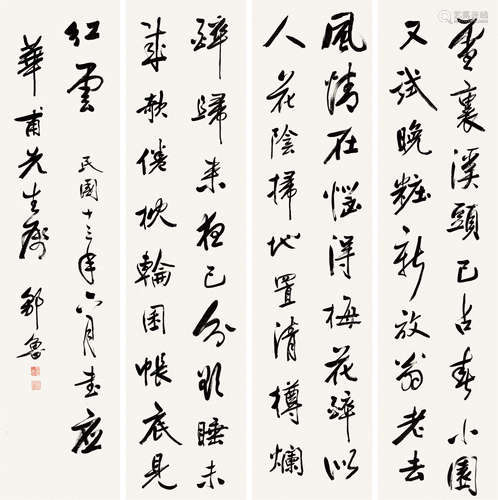 雪裏溪頭已占春小園
又試晚粧新放翁老去
風情在惱得梅花醉似
人花陰掃地置清樽爛
醉歸來夜已分欲睡未
成欹倦枕輪囷帳底見
紅雲 民國十三年六月書應
華甫先生屬 鄒魯